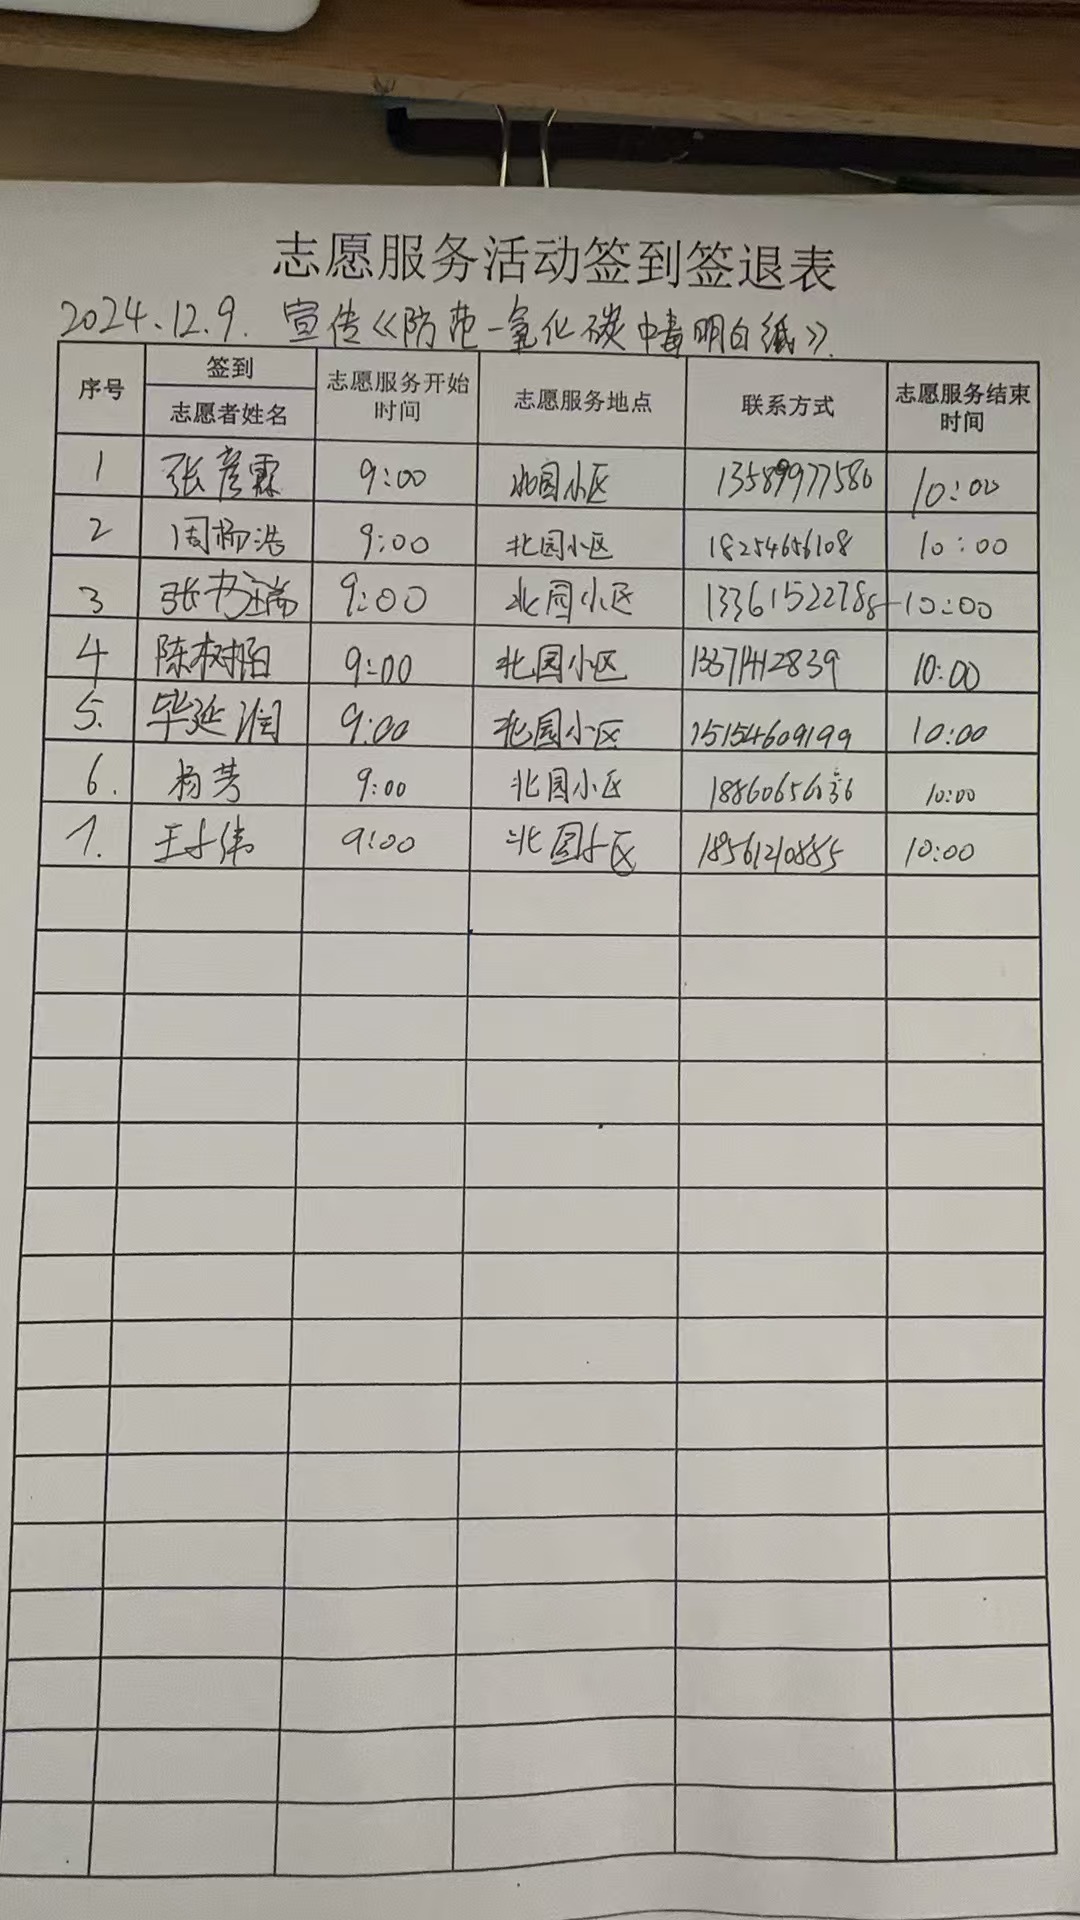 志愿服务活动签到签退表
2024.12.9. 宣传《防范一氧化碳中毒明白纸》.
序号 签到 志愿者姓名 志愿服务开始时间 志愿服务地点 联系方式 志愿服务结束时间
1 张彦霖 9:00 北园小区 13589977586 10:00
2 周杨浩 9:00 北园小区 18254656108 10:00
3 张书瑞 9:00 北园小区 13361522788 10:00
4 陈树阳 9:00 北园小区 13371412839 10:00
5. 毕延润 9:00 北园小区 15154609199 10:00
6. 杨芳 9:00 北园小区 10:00
7. 王小伟 9:00 北园小区 18561210885 10:00